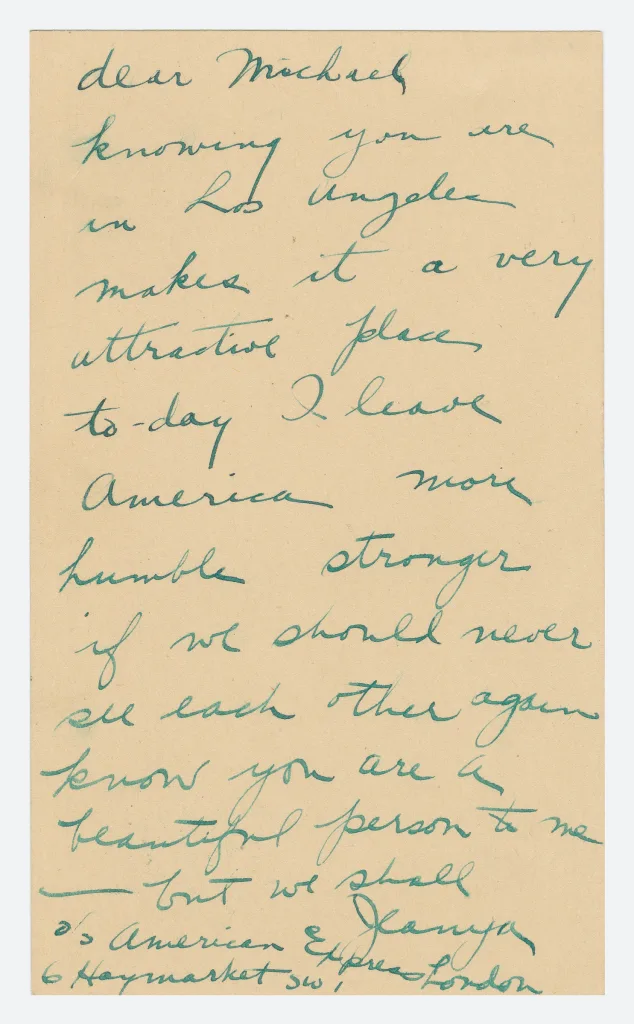 dear Michael
knowing you are
in Los Angeles
makes it a very
attractive place
to-day I leave
America more
humble stronger
if we should never
see each other again
know you are a
beautiful person to me
— but we shall
Jeanya
c/o American Express
6 Haymarket SW1 London